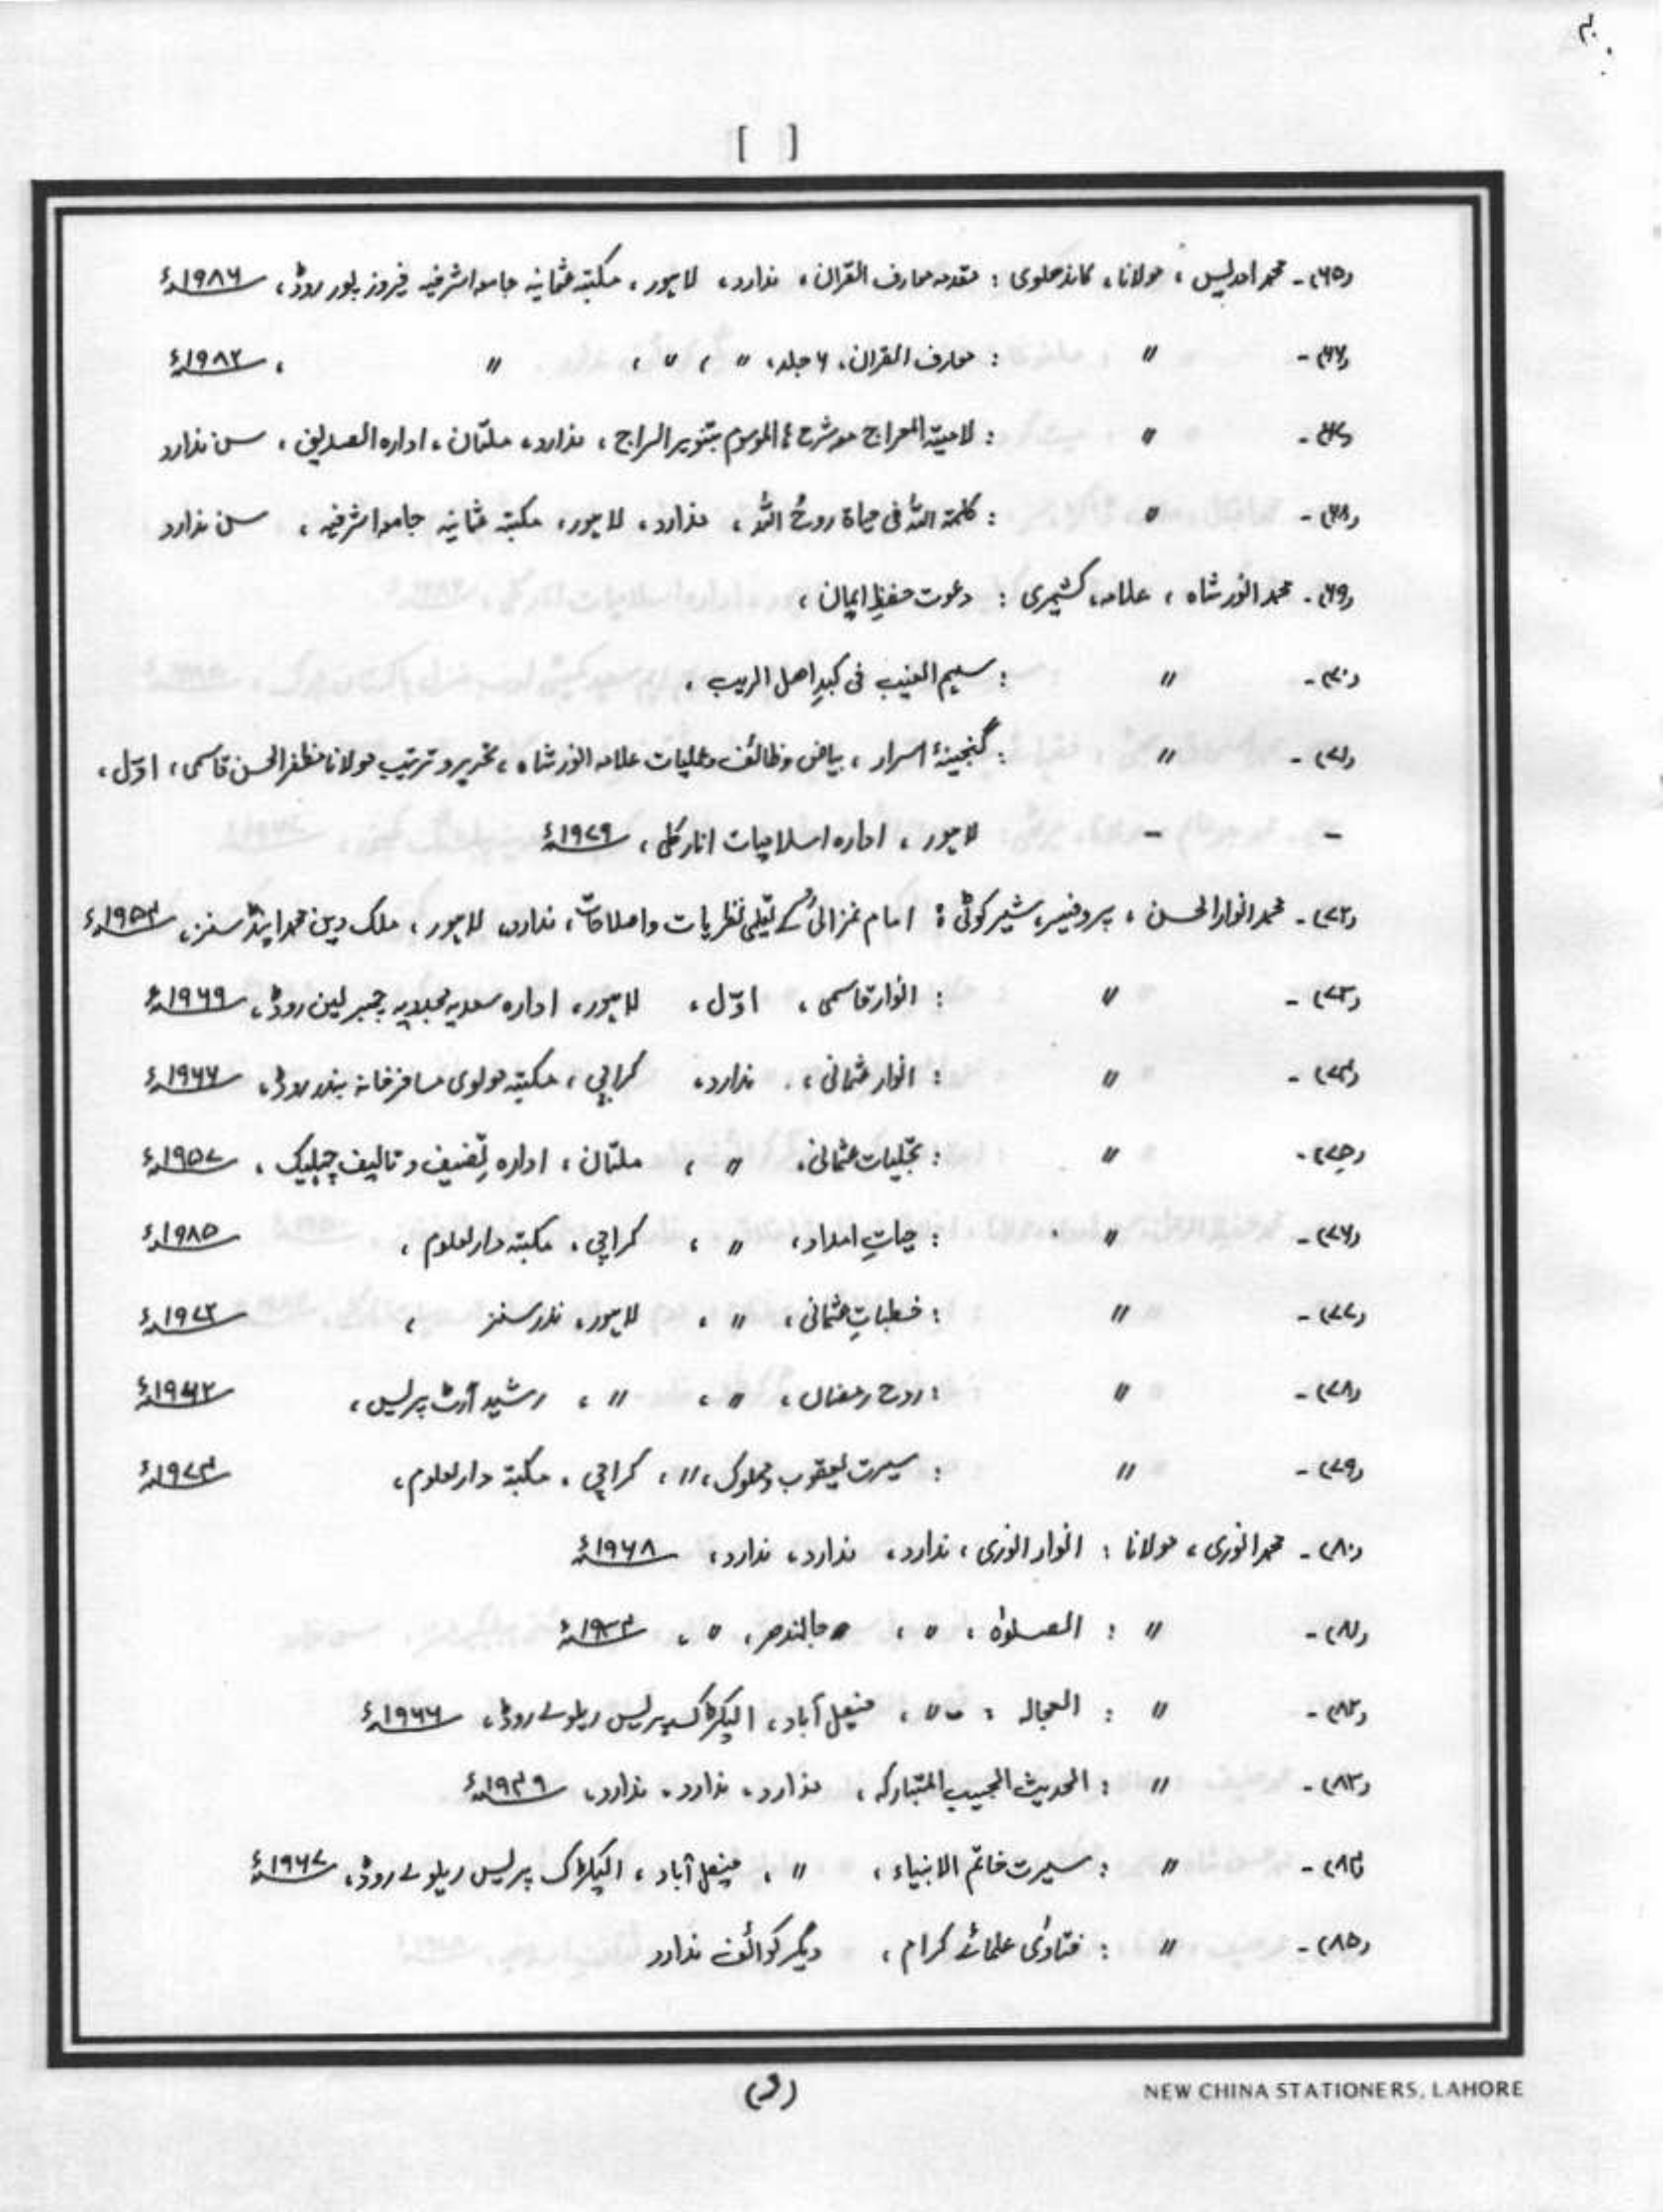 [ ]
(۶۵)۔ محمد ادریس ، مولانا ، کاندھلوی : مقدمہ معارف القرآن ، ندارد ، لاہور ، مکتبہ عثمانیہ جامعہ اشرفیہ فیروز پور روڈ ، ۱۹۸۶ء
(۶۶)۔ " : معارف القرآن ، ۶ جلد ، " ، " ، " ، ۱۹۸۲ء
(۶۷)۔ " : لامیۃ المعراج مع شرح الموسوم بتنویر السراج ، ندارد ، ملتان ، ادارہ الصدیق ، سن ندارد
(۶۸)۔ " : کلمۃ اللہ فی حیاۃ روح اللہ ، ندارد ، لاہور ، مکتبہ عثمانیہ جامعہ اشرفیہ ، سن ندارد
(۶۹)۔ محمد انور شاہ ، علامہ ، کشمیری : دعوت حفظِ ایمان ،
(۷۰)۔ " : سہم الغیب فی کبدِ اھل الریب ،
(۷۱)۔ " : گنجینۂ اسرار ، بیاض وظائف و عملیات علامہ انور شاہ ، تحریر و ترتیب مولانا مظفر الحسن قاسمی ، اوّل ،
– – لاہور ، ادارہ اسلامیات انارکلی ، ۱۹۷۹ء
(۷۲)۔ محمد انوار الحسن ، پروفیسر ، شیرکوٹی : امام غزالی کے تعلیمی نظریات و اصلاحات ، ندارد ، لاہور ، ملک دین محمد اینڈ سنز ، ۱۹۵۴ء
(۷۳)۔ " : انوار قاسمی ، اوّل ، لاہور ، ادارہ سعدیہ مجددیہ چیمبر لین روڈ ، ۱۹۶۹ء
(۷۴)۔ " : انوار عثمانی ، ندارد ، کراچی ، مکتبہ مولوی مسافر خانہ بندر روڈ ، ۱۹۶۷ء
(۷۵)۔ " : تجلیات عثمانی ، " ، ملتان ، ادارہ تصنیف و تالیف چہلیک ، ۱۹۵۷ء
(۷۶)۔ " : حیاتِ امداد ، " ، کراچی ، مکتبہ دارالعلوم ، ۱۹۸۵ء
(۷۷)۔ " : خطباتِ عثمانی ، " ، لاہور ، نذر سنز ، ۱۹۷۲ء
(۷۸)۔ " : روح رمضان ، " ، " ، رشید آرٹ پریس ،
(۷۹)۔ " : سیرت یعقوب و مملوک ، " ، کراچی ، مکتبہ دارالعلوم ، ۱۹۷۴ء
(۸۰)۔ محمد انوری ، مولانا : انوار انوری ، ندارد ، ندارد ، ندارد ، ۱۹۶۸ء
(۸۱)۔ " : الصلوٰۃ ، " ، جالندھر ، " ،
(۸۲)۔ " : العجالہ ، " ، فیصل آباد ، الیکٹرک پریس ریلوے روڈ ، ۱۹۶۶ء
(۸۳)۔ " : الحدیث المجیب المتبارکہ ، ندارد ، ندارد ، ندارد ، ۱۹۴۹ء
(۸۴)۔ " : سیرت خاتم الانبیاء ، " ، فیصل آباد ، الیکٹرک پریس ریلوے روڈ ، ۱۹۶۷ء
(۸۵)۔ " : فتاویٰ علمائے کرام ، دیگر کوائف ندارد
(و)
NEW CHINA STATIONERS, LAHORE